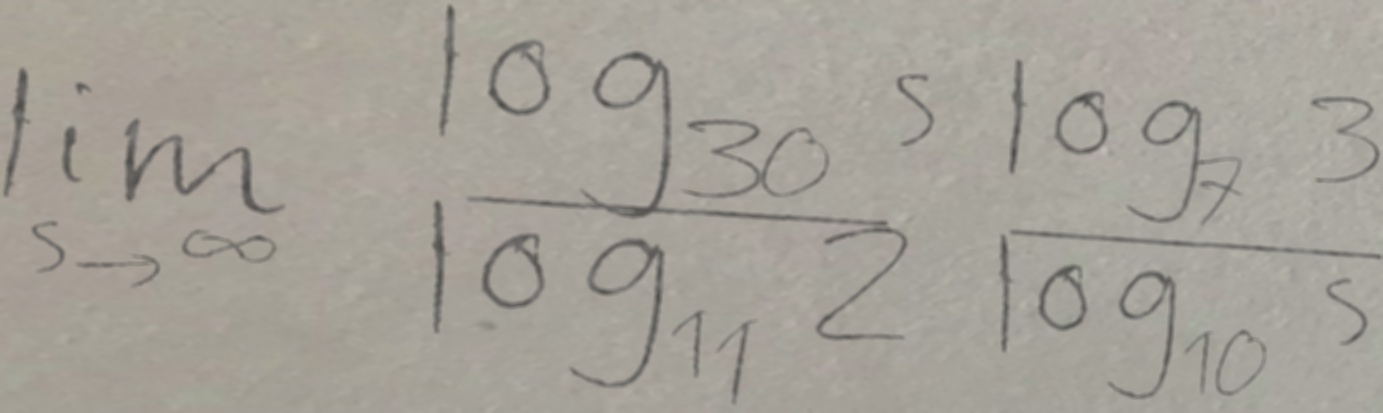 \lim_{s \to \infty} \frac{\log_{30} s}{\log_{11} 2} \frac{\log_7 3}{\log_{10} s}